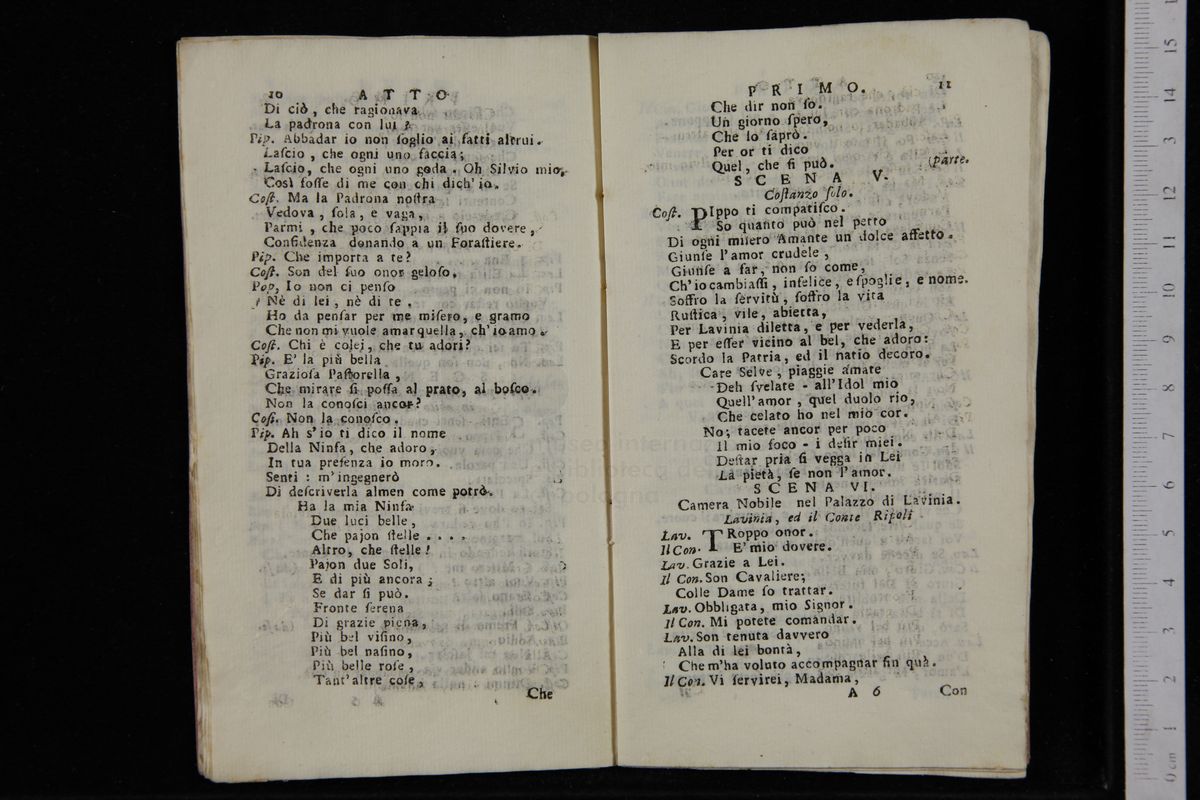 10 ATTO
Di ciò, che ragionava
La padrona con lui?
Pip. Abbadar io non ſoglio ai fatti altrui.
Laſcio, che ogni uno faccia;
Laſcio, che ogni uno goda. Oh Silvio mio,
Così foſſe di me con chi dich' io.
Coſt. Ma la Padrona noſtra
Vedova, ſola, e vaga,
Parmi, che poco ſappia il ſuo dovere,
Confidenza donando a un Foraſtiere.
Pip. Che importa a te?
Coſt. Son del ſuo onor geloſo,
Pop, Io non ci penſo
Nè di lei, nè di te,
Ho da penſar per me miſero, e gramo
Che non mi vuole amar quella, ch' io amo.
Coſt. Chi è colei, che tu adori?
Pip. E' la più bella
Grazioſa Paſtorella,
Che mirare ſi poſſa al prato, al boſco.
Non la conoſci ancor?
Coſt. Non la conoſco.
Pip. Ah s' io ti dico il nome
Della Ninfa, che adoro,
In tua preſenza io moro.
Senti: m' ingegnerò
Di deſcriverla almen come potrò.
Ha la mia Ninfa
Due luci belle,
Che pajon ſtelle ....
Altro, che ſtelle!
Pajon due Soli,
E di più ancora;
Se dar ſi può.
Fronte ſerena
Di grazie piena,
Più bel viſino,
Più bel naſino,
Più belle roſe,
Tant' altre coſe,
Che
PRIMO. 11
Che dir non ſo.
Un giorno ſpero,
Che lo ſaprò.
Per or ti dico
Quel, che ſi può. (parte.
SCENA V.
Coſtanzo ſolo.
Coſt. PIppo ti compatiſco.
So quanto può nel petto
Di ogni miſero Amante un dolce affetto.
Giunſe l' amor crudele,
Giunſe a far, non ſo come,
Ch' io cambiaſſi, infelice, e ſpoglie, e nome.
Soffro la ſervitù, ſoffro la vita
Ruſtica, vile, abietta,
Per Lavinia diletta, e per vederla,
E per eſſer vicino al bel, che adoro:
Scordo la Patria, ed il natio decoro.
Care Selve, piaggie amate
Deh ſvelate - all' Idol mio
Quell' amor, quel duolo rio,
Che celato ho nel mio cor.
No; tacete ancor per poco
Il mio foco - i deſir miei.
Deſtar pria ſi vegga in Lei
La pietà, ſe non l' amor.
SCENA VI.
Camera Nobile nel Palazzo di Lavinia.
Lavinia, ed il Conte Ripoli
Lav. TRoppo onor.
Il Con. E' mio dovere.
Lav. Grazie a Lei.
Il Con. Son Cavaliere;
Colle Dame ſo trattar.
Lav. Obbligata, mio Signor.
Il Con. Mi potete comandar.
Lav. Son tenuta davvero
Alla di lei bontà,
Che m' ha voluto accompagnar fin quà.
Il Con. Vi ſervirei, Madama,
A 6 Con
0 cm 1 2 3 4 5 6 7 8 9 10 11 12 13 14 15